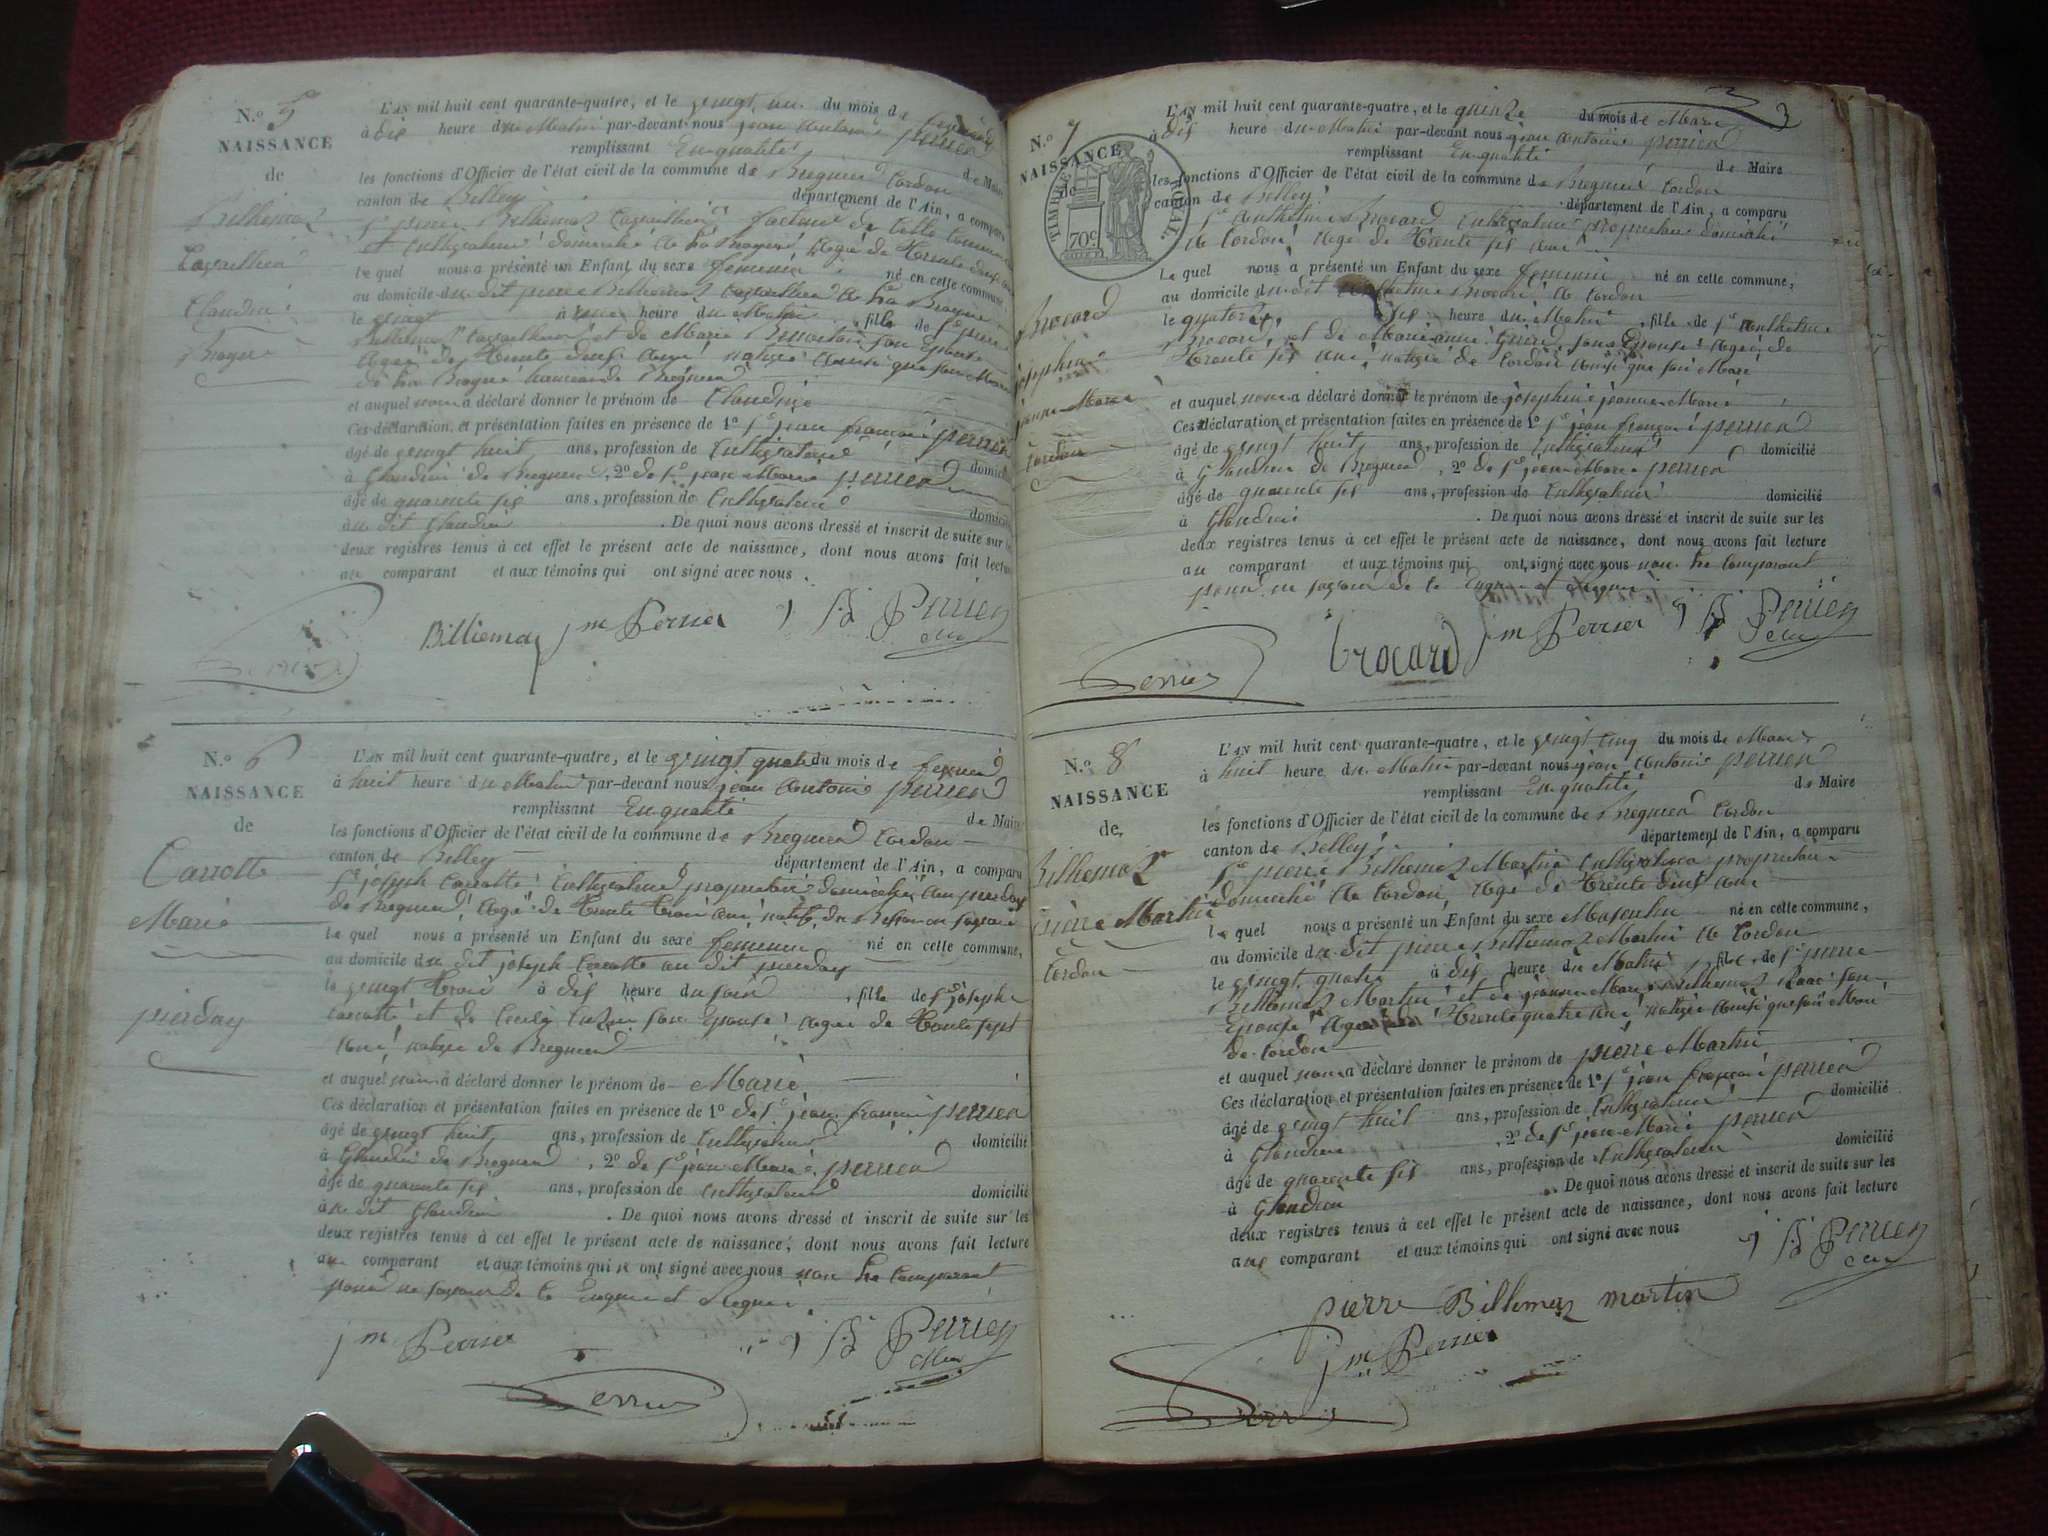 N.º 5
NAISSANCE
de
Billiemaz
Claudine
L'AN mil huit cent quarante-quatre, et le vingt un du mois de
à dix heure du Matin par-devant nous jean Antoine perrier
remplissant En qualité de Maire
les fonctions d'Officier de l'état civil de la commune de Bregnier Cordon
canton de Belley département de l'Ain, a comparu
Sr pierre Billiemaz facteur de cette commune
et Cultivateur domicilié à La Bruyere Agé de Trente deux ans
le quel nous a présenté un Enfant du sexe feminin né en cette commune,
au domicile du dit pierre Billiemaz
le vingt à heure du Matin, fille de Sr pierre
Billiemaz et de Marie son Epouse
Agée de Trente deux ans native Ainsi que son Mari
de La hameau de Bregnier
et auquel nous a déclaré donner le prénom de Claudine
Ces déclaration et présentation faites en présence de 1º Sr jean françois perrier
âgé de vingt huit ans, profession de Cultivateur domicilié
à Glandieu de Bregnier, 2º de Sr jean Marie perrier
âgé de quarante six ans, profession de Cultivateur domicilié
au dit Glandieu. De quoi nous avons dressé et inscrit de suite sur les
deux registres tenus à cet effet le présent acte de naissance, dont nous avons fait lecture
au comparant et aux témoins qui ont signé avec nous.
Billiemaz jm Perrier j A Perrier
Perrier
N.º 6
NAISSANCE
de
Carrotte
Marie
pierday
L'AN mil huit cent quarante-quatre, et le vingt quatre du mois de fevrier
à huit heure du Matin par-devant nous jean Antoine perrier
remplissant En qualité de Maire
les fonctions d'Officier de l'état civil de la commune de Bregnier Cordon
canton de Belley département de l'Ain, a comparu
Sr joseph Carrotte Cultivateur proprietaire domicilié au pierday
de Bregnier, Agé de Trente Trois ans, natif de
le quel nous a présenté un Enfant du sexe feminin né en cette commune,
au domicile du dit joseph Carrotte au dit pierday
le vingt Trois à dix heure du soir, fille de Sr joseph
Carrotte et de son Epouse Agée de Trente sept
Ans native de Bregnier
et auquel nous a déclaré donner le prénom de Marie
Ces déclaration et présentation faites en présence de 1º de Sr jean françois perrier
âgé de vingt huit ans, profession de Cultivateur domicilié
à Glandieu de Bregnier, 2º de Sr jean Marie perrier
âgé de quarante six ans, profession de Cultivateur domicilié
au dit Glandieu. De quoi nous avons dressé et inscrit de suite sur les
deux registres tenus à cet effet le présent acte de naissance, dont nous avons fait lecture
au comparant et aux témoins qui ont signé avec nous non Le Comparant
pour ne savoir de ce Enquis et Requis.
jm Perrier j A Perrier
Perrier
N.º 7
NAISSANCE
de
TIMBRE ROYAL
70c
Brocard
josephine
jeanne Marie
Cordon
L'AN mil huit cent quarante-quatre, et le quinze du mois de Mars
à dix heure du Matin par-devant nous jean Antoine perrier
remplissant En qualité de Maire
les fonctions d'Officier de l'état civil de la commune de Bregnier Cordon
canton de Belley département de l'Ain, a comparu
Sr Anthelme Brocard Cultivateur proprietaire domicilié
à Cordon, Agé de Trente six ans
le quel nous a présenté un Enfant du sexe feminin né en cette commune,
au domicile du dit Anthelme Brocard à Cordon
le quatorze, six heure du Matin, fille de Sr Anthelme
Brocard, et de Marianne son Epouse Agée de
Trente six ans, native de Cordon Ainsi que son Mari
et auquel nous a déclaré donner le prénom de josephine jeanne Marie
Ces déclaration et présentation faites en présence de 1º Sr jean françois perrier
âgé de vingt huit ans, profession de Cultivateur domicilié
à Glandieu de Bregnier, 2º de Sr jean Marie perrier
âgé de quarante six ans, profession de Cultivateur domicilié
à Glandieu. De quoi nous avons dressé et inscrit de suite sur les
deux registres tenus à cet effet le présent acte de naissance, dont nous avons fait lecture
au comparant et aux témoins qui ont signé avec nous non Le Comparant
pour ne savoir de ce Enquis et Requis
brocard jm Perrier j A Perrier
Perrier
N.º 8
NAISSANCE
de
Billiemaz
pierre Martin
Cordon
L'AN mil huit cent quarante-quatre, et le vingt cinq du mois de Mars
à huit heure du Matin par-devant nous jean Antoine perrier
remplissant En qualité de Maire
les fonctions d'Officier de l'état civil de la commune de Bregnier Cordon
canton de Belley département de l'Ain, a comparu
Sr pierre Billiemaz Martin Cultivateur proprietaire
domicilié à Cordon, Agé de Trente deux ans
le quel nous a présenté un Enfant du sexe Masculin né en cette commune,
au domicile du dit pierre Billiemaz Martin à Cordon
le vingt quatre à dix heure du Matin, fils de Sr pierre
Billiemaz Martin et de jeanne Marie Billiemaz son
Epouse Agée de Trente quatre ans, native Ainsi que son Mari
de Cordon
et auquel nous a déclaré donner le prénom de pierre Martin
Ces déclaration et présentation faites en présence de 1º Sr jean françois perrier
âgé de vingt huit ans, profession de Cultivateur domicilié
à Glandieu, 2º de Sr jean Marie perrier
âgé de quarante six ans, profession de Cultivateur domicilié
à Glandieu. De quoi nous avons dressé et inscrit de suite sur les
deux registres tenus à cet effet le présent acte de naissance, dont nous avons fait lecture
au comparant et aux témoins qui ont signé avec nous
j A Perrier
pierre Billemaz martin
jm Perrier
Perrier